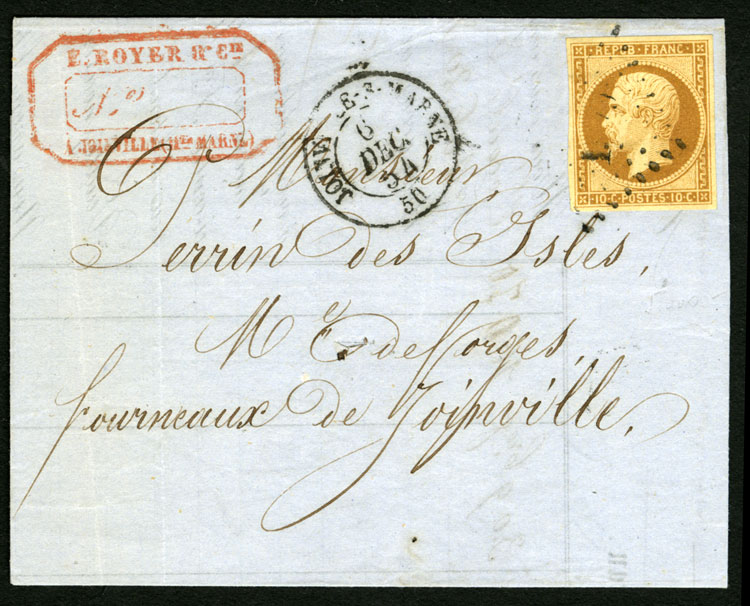 E. ROYER & Cie
N°
A JOINVILLE (Hte MARNE)
JOINVILLE-S-MARNE
6
DEC.
54
50
REPUB. FRANC.
10.C. POSTES 10.C.
Monsieur
Perrin des Isles,
Me de forges,
fourneaux de Joinville.